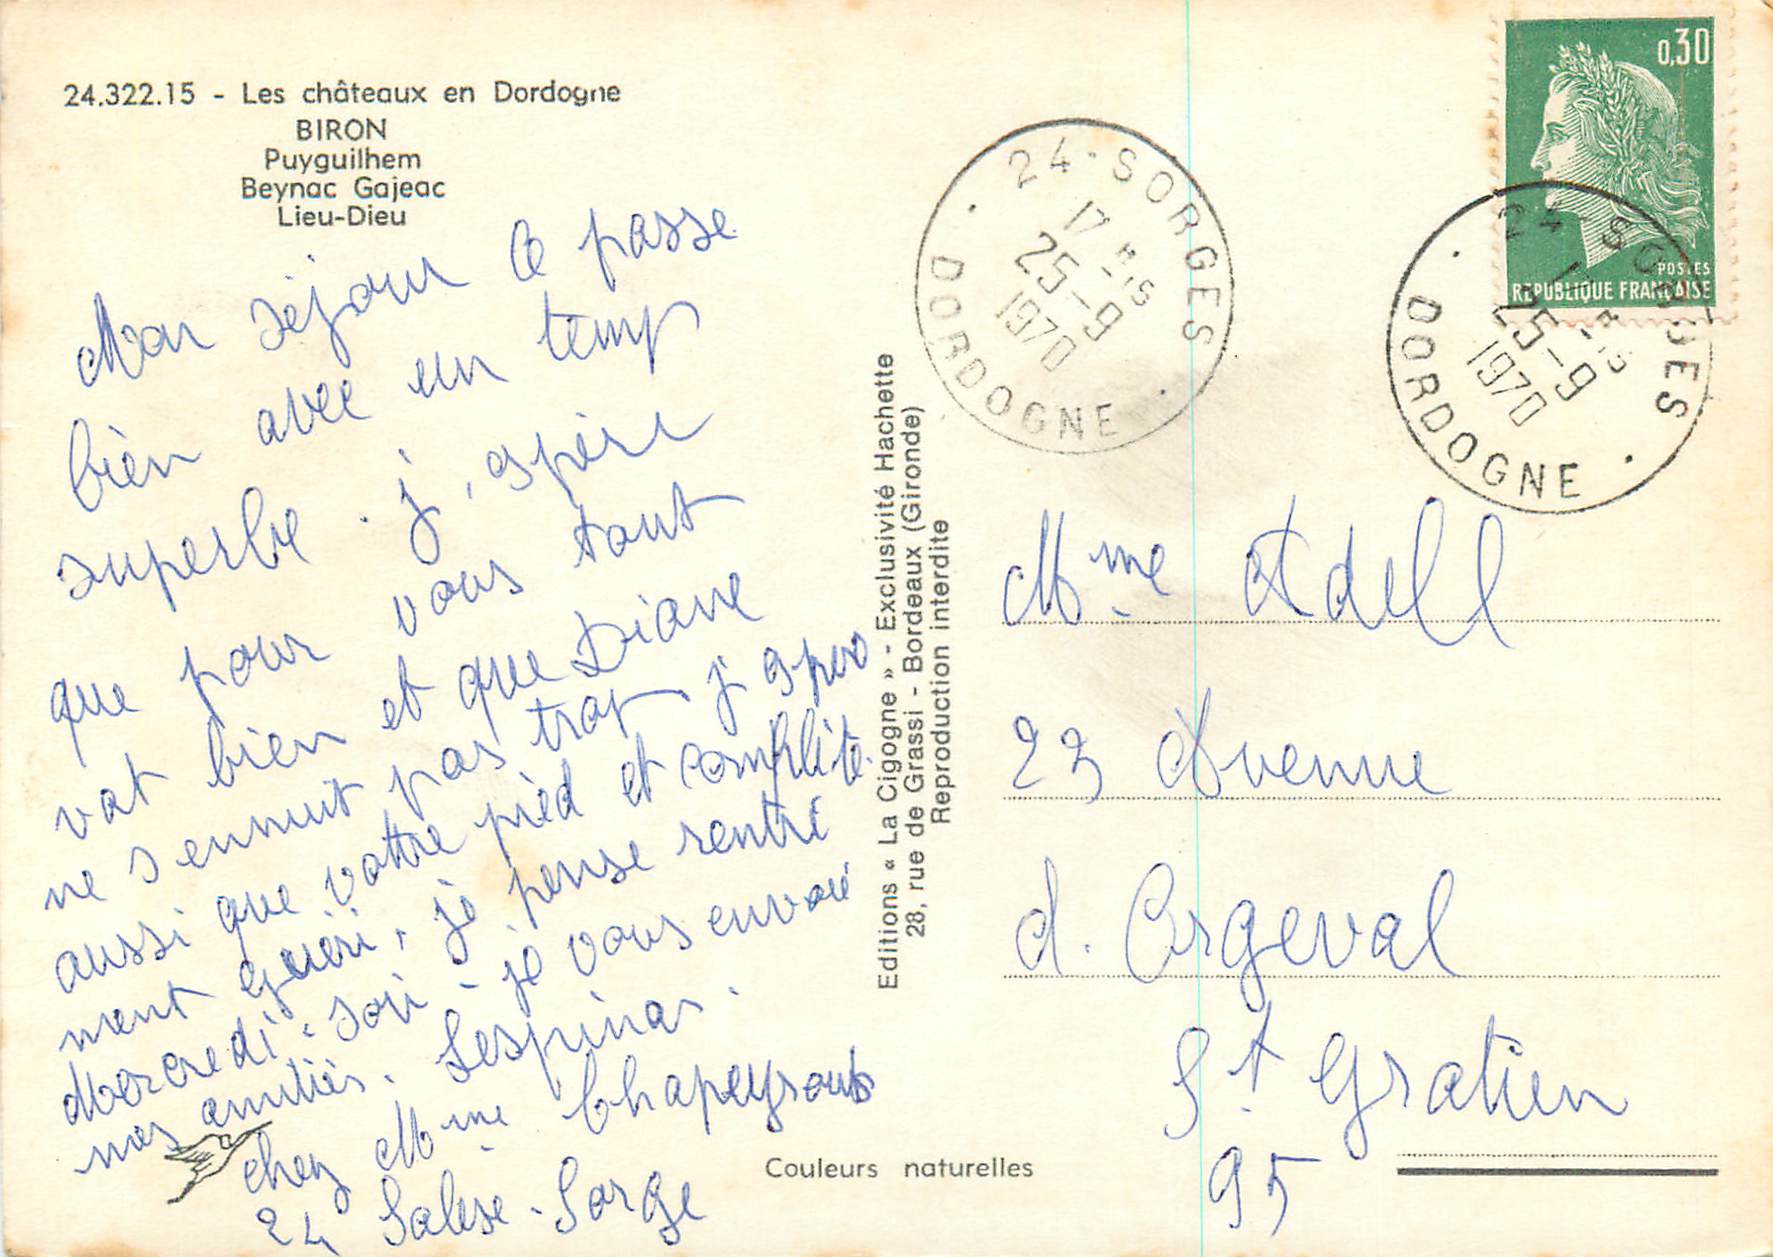 24.322.15 - Les châteaux en Dordogne
BIRON
Puyguilhem
Beynac Gajeac
Lieu-Dieu
Mon séjour ce passe
bien avec un temp
superbe. j'espère
que pour vous tout
vat bien et que Diane
ne s'ennuit pas trop. j'esper
aussi que vottre pied et complète
ment guéri, je pense rentré
Mercredi. soir. je vous envoié
mes amitiés. Lespinas.
chez Mme Chapeyroub
24 Salese. Sorge
Editions « La Cigogne » - Exclusivité Hachette
28, rue de Grassi - Bordeaux (Gironde)
Reproduction interdite
Couleurs naturelles
24-SORGES
17H-15
25-9
1970
DORDOGNE
0,30
POSTES
REPUBLIQUE FRANÇAISE
24-SORGES
17H-15
25-9
1970
DORDOGNE
Mme Adell
23 Avenue
d. Orgeval
St Gratien
95